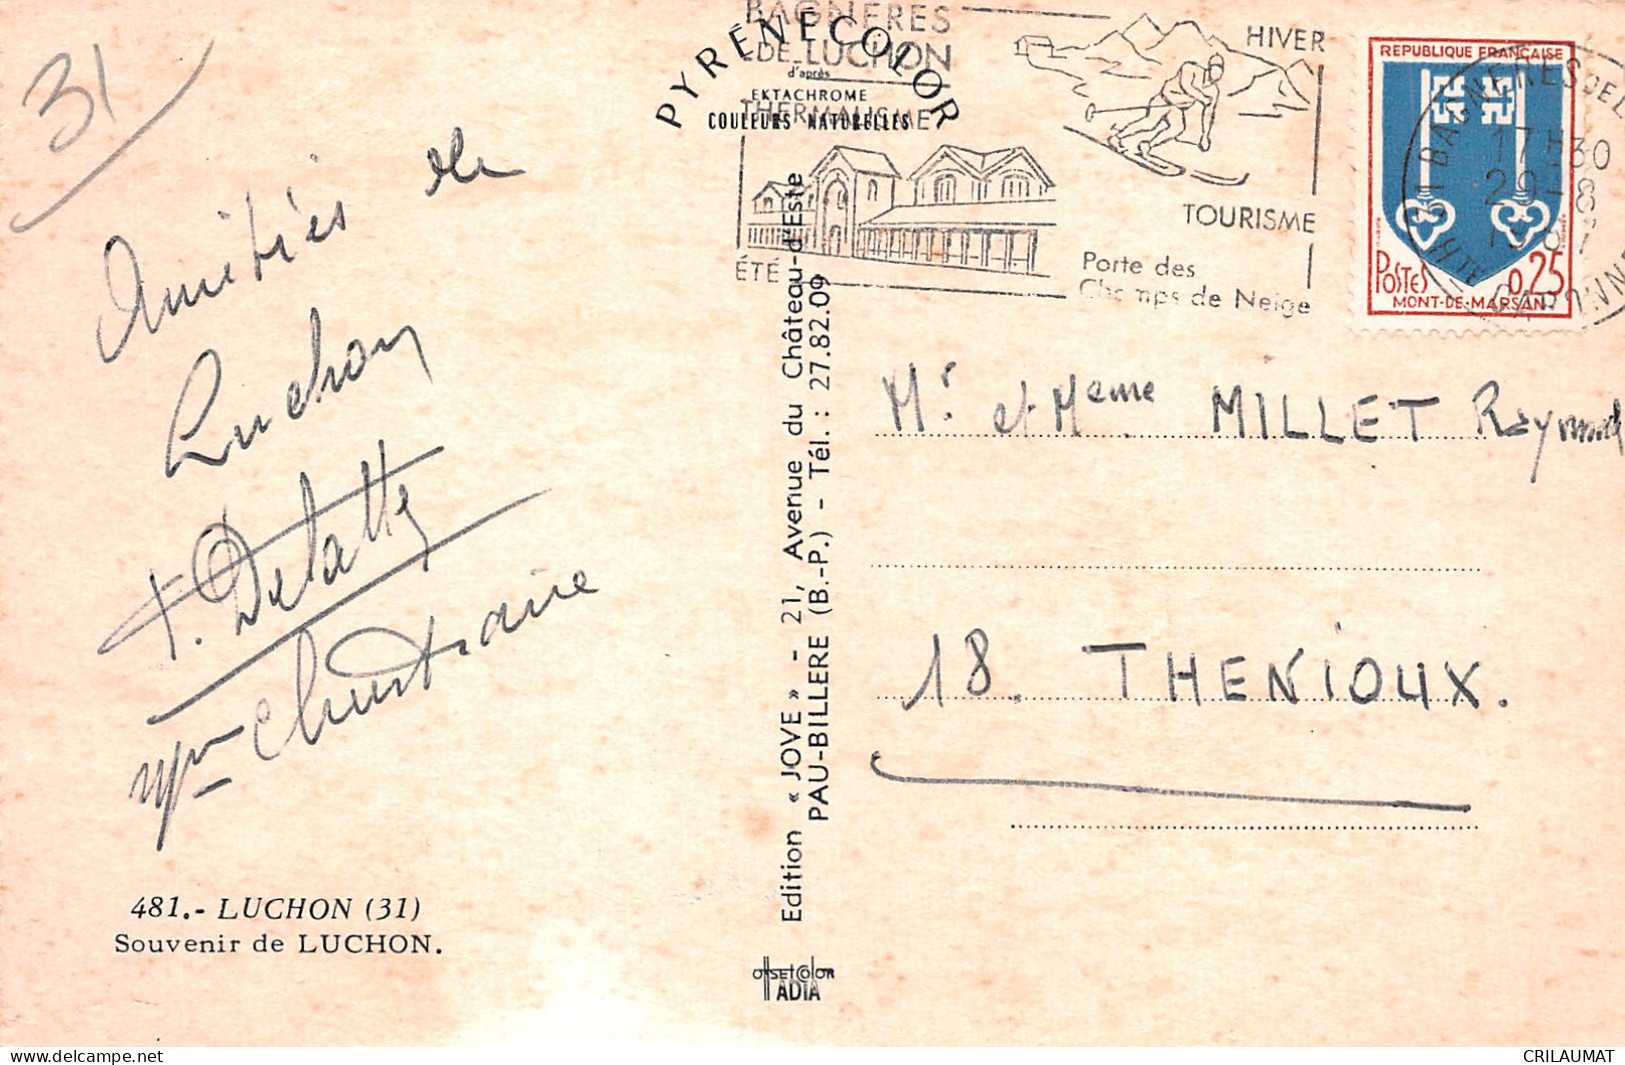 31
Amitiés de
Luchon
F. Delatte
Mme
481.- LUCHON (31)
Souvenir de LUCHON.
PYRÉNÉCOLOR
d'après
EKTACHROME
COULEURS NATURELLES
Edition « JOVE » - 21, Avenue du Château-d'Este
PAU-BILLERE (B.-P.) - Tél. : 27.82.09
OFFSET COLOR
ADIA
BAGNERES
DE LUCHON
THERMALISME
ÉTÉ
HIVER
TOURISME
Porte des
Champs de Neige
REPUBLIQUE FRANÇAISE
POSTES 0,25
MONT-DE-MARSAN
31 BAGNERES DE L
17H30
29-8
HTE GARONNE
Mr. et Meme MILLET Raymond
18. THENIOUX.
delcampe.net
CRILAUMAT